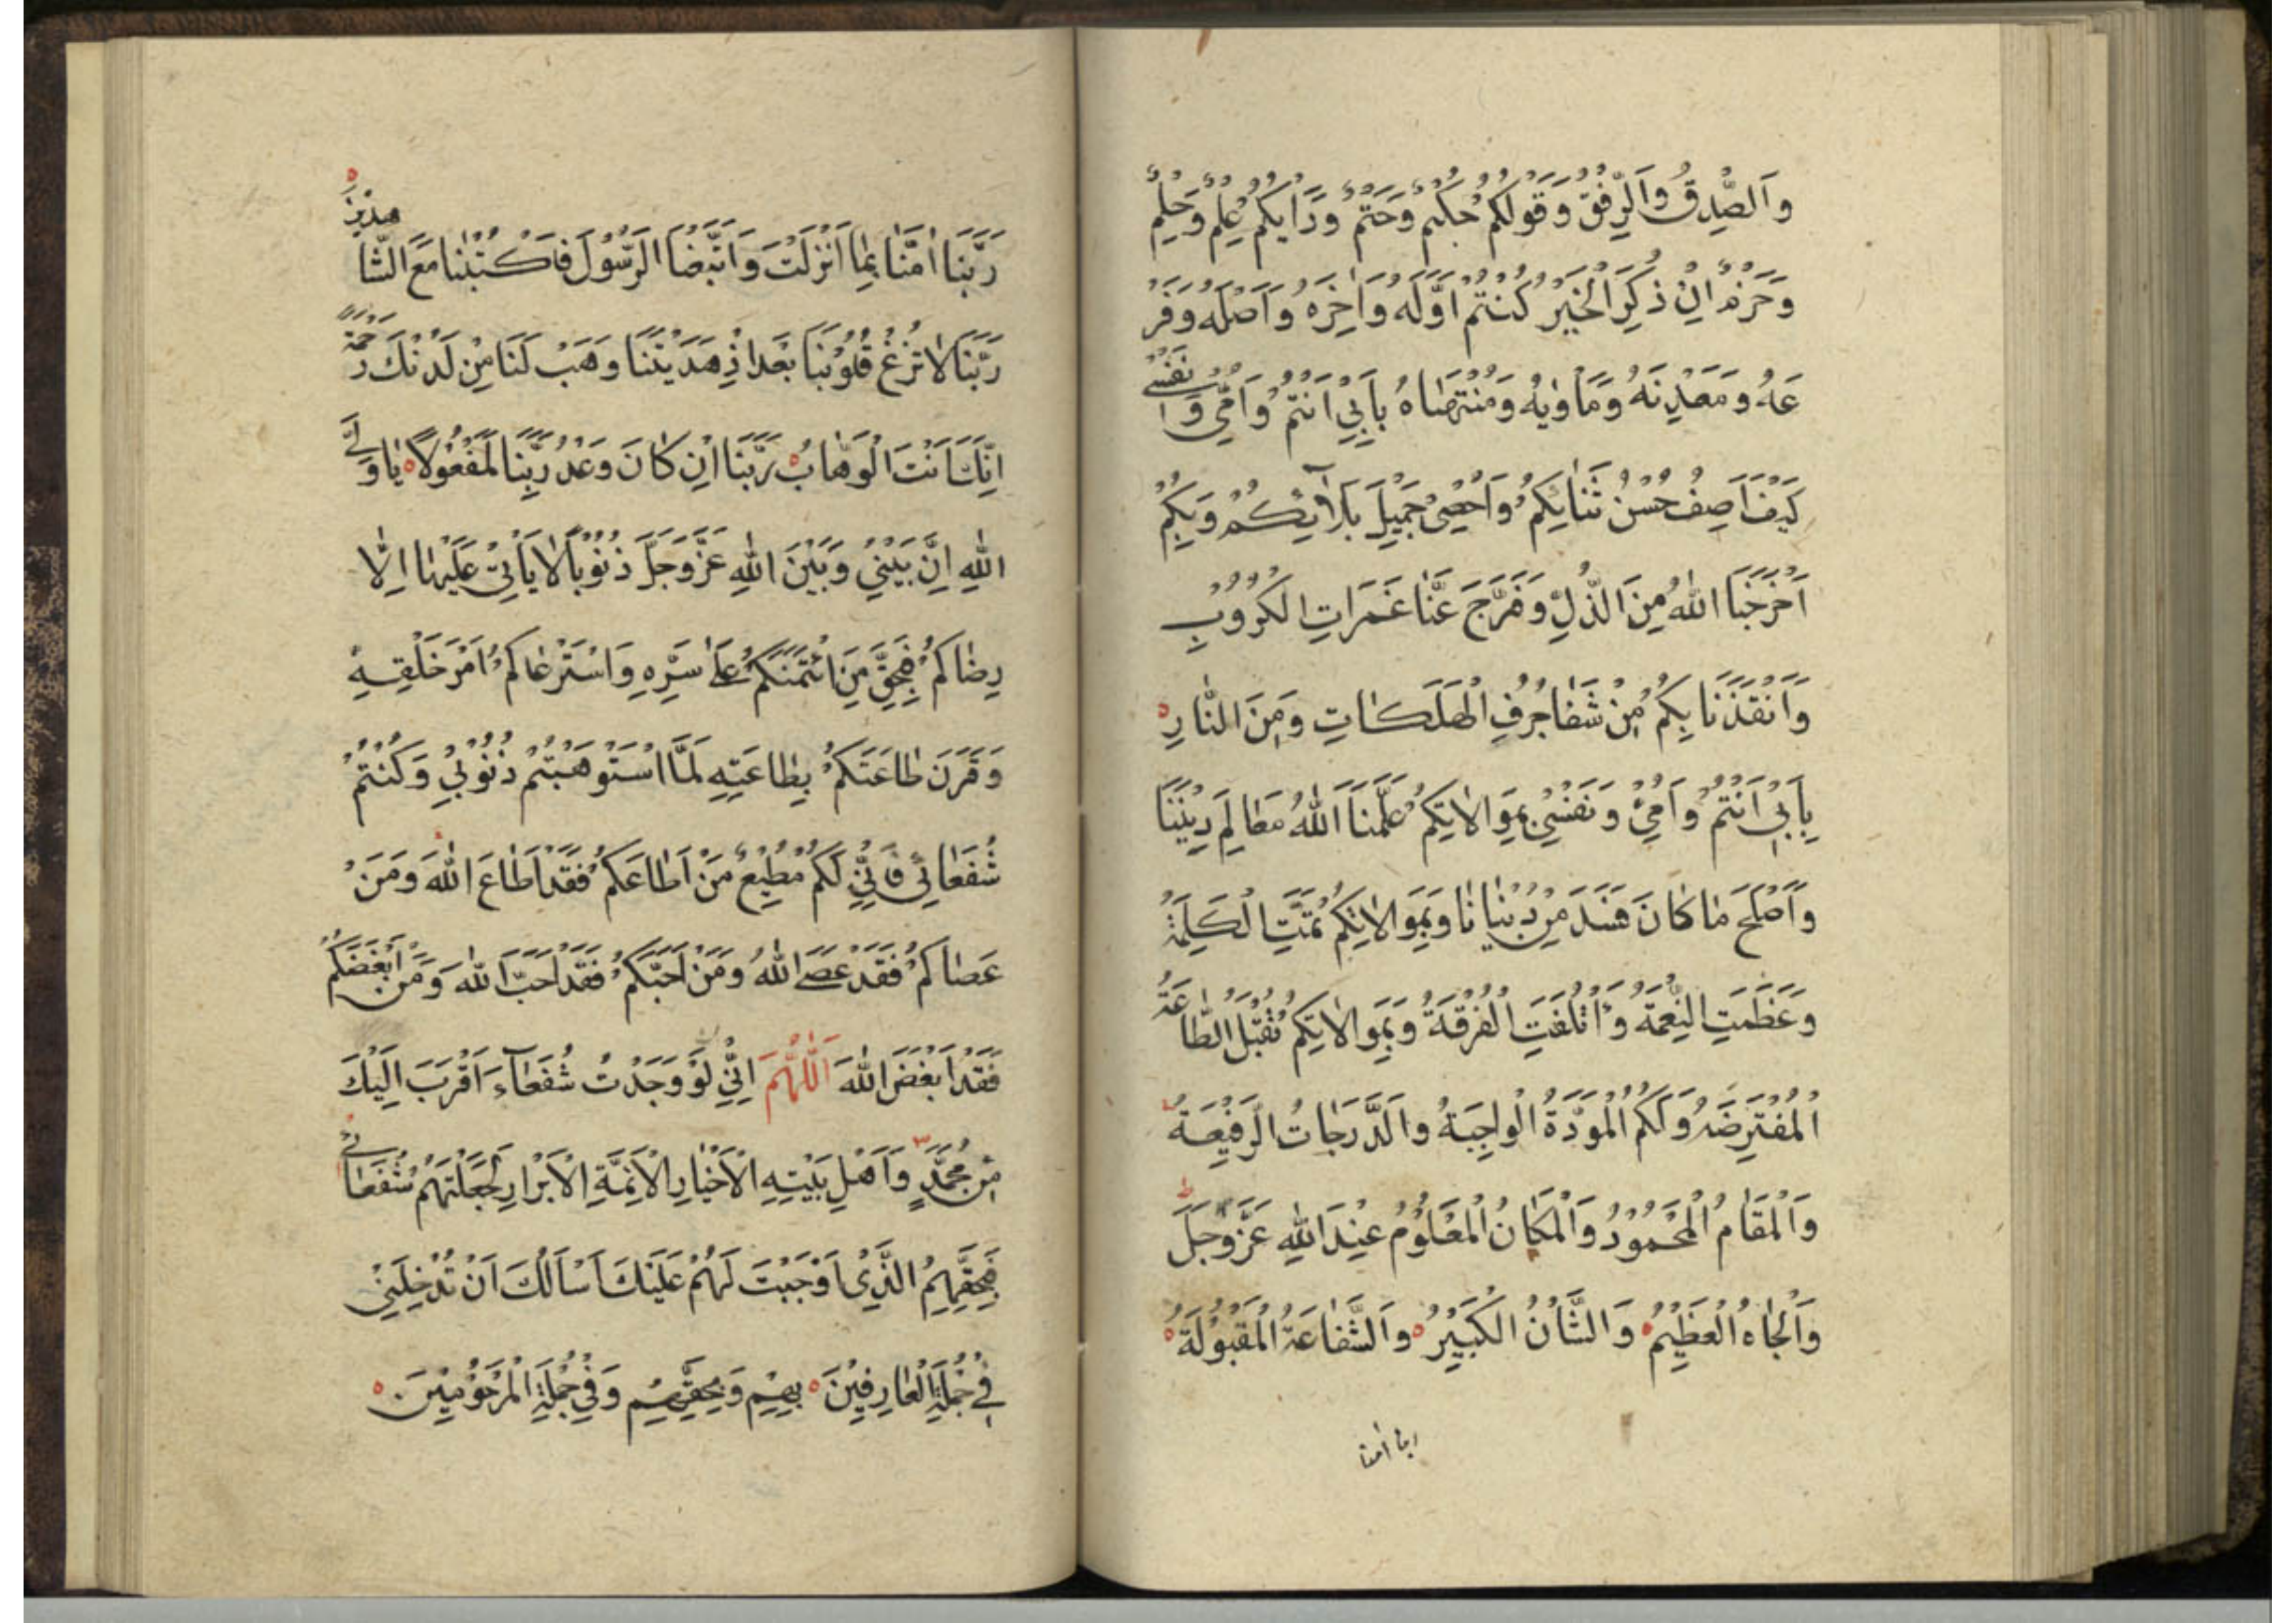 وَالصِّدقُ وَالرِّفْقُ وَقَولُكُمْ حُكْمٌ وَحَتْمٌ وَرَأْيُكُمْ عِلْمٌ وَحِلْمٌ
وَحَزْمٌ اِنْ ذُكِرَ الْخَيْرُ كُنْتُمْ اَوَّلَهُ وَاٰخِرَهُ وَاَصْلَهُ وَفَرْ
عَهُ وَمَعْدِنَهُ وَمَأْوٰيهُ وَمُنْتَهٰاهُ بِاَبِيْ اَنْتُمْ وَاُمِّي وَنَفْسِي
كَيْفَ اَصِفُ حُسْنَ ثَنٰائِكُمْ وَاُحْصِيْ جَمِيْلَ بَلٰآئِكُمْ وَبِكُمْ
اَخْرَجَنَا اللهُ مِنَ الذُّلِّ وَفَرَّجَ عَنَّا غَمَرَاتِ الْكُرُوْبِ
وَاَنْقَذَنَا بِكُمْ مِنْ شَفٰا جُرُفِ الْهَلَكٰاتِ وَمِنَ النّٰارِ
بِاَبِيْ اَنْتُمْ وَاُمِّيْ وَنَفْسِيْ بِمَوٰالاتِكُمْ عَلَّمَنَا اللهُ مَعٰالِمَ دِيْنِنَا
وَاَصْلَحَ مٰا كٰانَ فَسَدَ مِنْ دُنْيٰانٰا وَبِمَوٰالاتِكُمْ تَمَّتِ الْكَلِمَةُ
وَعَظُمَتِ النِّعْمَةُ وَاْتَلَفَتِ الْفُرْقَةُ وَبِمَوٰالاتِكُمْ تُقْبَلُ الطّٰاعَةُ
الْمُفْتَرِضَةُ وَلَكُمُ الْمَوَدَّةُ الْوٰاجِبَةُ وَالدَّرَجٰاتُ الرَّفِيْعَةُ
وَالْمَقٰامُ الْمَحْمُوْدُ وَالْمَكٰانُ الْمَعْلُوْمُ عِنْدَ اللهِ عَزَّ وَجَلَّ
وَالْجٰاهُ الْعَظِيْمُ وَالشَّأْنُ الْكَبِيْرُ وَالشَّفٰاعَةُ الْمَقْبُوْلَةُ
ربنا اٰمنا
رَبَّنَا اٰمَنّٰا بِمٰا اَنْزَلْتَ وَاتَّبَعْنَا الرَّسُوْلَ فَاكْتُبْنٰا مَعَ الشّٰاهِدِيْنَ
رَبَّنَا لاٰ تُزِغْ قُلُوْبَنَا بَعْدَ اِذْ هَدَيْتَنَا وَهَبْ لَنَا مِنْ لَدُنْكَ رَحْمَةً
اِنَّكَ اَنْتَ الْوَهّٰابُ رَبَّنَا اِنْ كٰانَ وَعْدُ رَبِّنَا لَمَفْعُوْلاً يٰا وَلِيَّ
اللهِ اِنَّ بَيْنِيْ وَبَيْنَ اللهِ عَزَّ وَجَلَّ ذُنُوْباً لاٰ يَأْتِيْ عَلَيْهٰا اِلّٰا
رِضٰاكُمْ فَبِحَقِّ مَنِ ائْتَمَنَكُمْ عَلٰى سِرِّهِ وَاسْتَرْعٰاكُمْ اَمْرَ خَلْقِهِ
وَقَرَنَ طٰاعَتَكُمْ بِطٰاعَتِهِ لَمَّا اسْتَوْهَبْتُمْ ذُنُوْبِيْ وَكُنْتُمْ
شُفَعٰائِي فَاِنِّيْ لَكُمْ مُطِيْعٌ مَنْ اَطٰاعَكُمْ فَقَدْ اَطٰاعَ اللهَ وَمَنْ
عَصٰاكُمْ فَقَدْ عَصَى اللهَ وَمَنْ اَحَبَّكُمْ فَقَدْ اَحَبَّ اللهَ وَمَنْ اَبْغَضَكُمْ
فَقَدْ اَبْغَضَ اللهَ اَللّٰهُمَّ اِنِّيْ لَوْ وَجَدْتُ شُفَعٰآءَ اَقْرَبَ اِلَيْكَ
مِنْ مُحَمَّدٍ وَاَهْلِ بَيْتِهِ الْاَخْيٰارِ الْاَئِمَّةِ الْاَبْرَارِ لَجَعَلْتُهُمْ شُفَعٰائِي
فَبِحَقِّهِمُ الَّذِيْ اَوْجَبْتَ لَهُمْ عَلَيْكَ اَسْاَلُكَ اَنْ تُدْخِلَنِيْ
فِيْ جُمْلَةِ الْعٰارِفِيْنَ بِهِمْ وَبِحَقِّهِمْ وَفِيْ جُمْلَةِ الْمَرْحُوْمِيْنَ